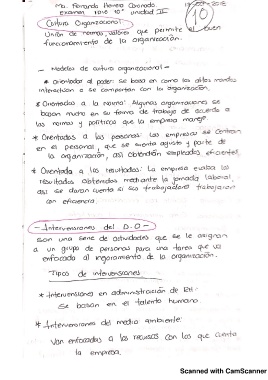 Ma. Fernanda Herrera Coronado.
Examen 1818 10° unidad II
10
Cultura Organizacional
Unión de normas, valores que permite el buen
funcionamiento de la organización.
- Modelos de cultura organizacional -
* Orientados al poder: se basa en como los altos mandos
interactúan o se comparten con la organización.
* Orientados a la norma: Algunas organizaciones se
basan mucho en su forma de trabajo de acuerdo a
las normas y políticas que la empresa
* Orientados a las personas: Las empresas se centran
en el personal, que se sienta agusto y parte de
la organización, así obtendrán empleados eficientes.
* Orientada a los resultados: La empresa evalúa los
resultados obtenidos mediante la jornada laboral,
así se darán cuenta si sus trabajadores trabajaron
con eficiencia.
- Intervenciones del D.O -
Son una serie de actividades que se le asignan
a un grupo de personas para una tarea que va
enfocada al mejoramiento de la organización.
Tipos de intervenciones
* Intervenciones en administración de RH-
Se basan en el talento humano.
* Intervenciones del medio ambiente:
Van enfocadas a los recursos con los que cuenta
la empresa.
Scanned with CamScanner